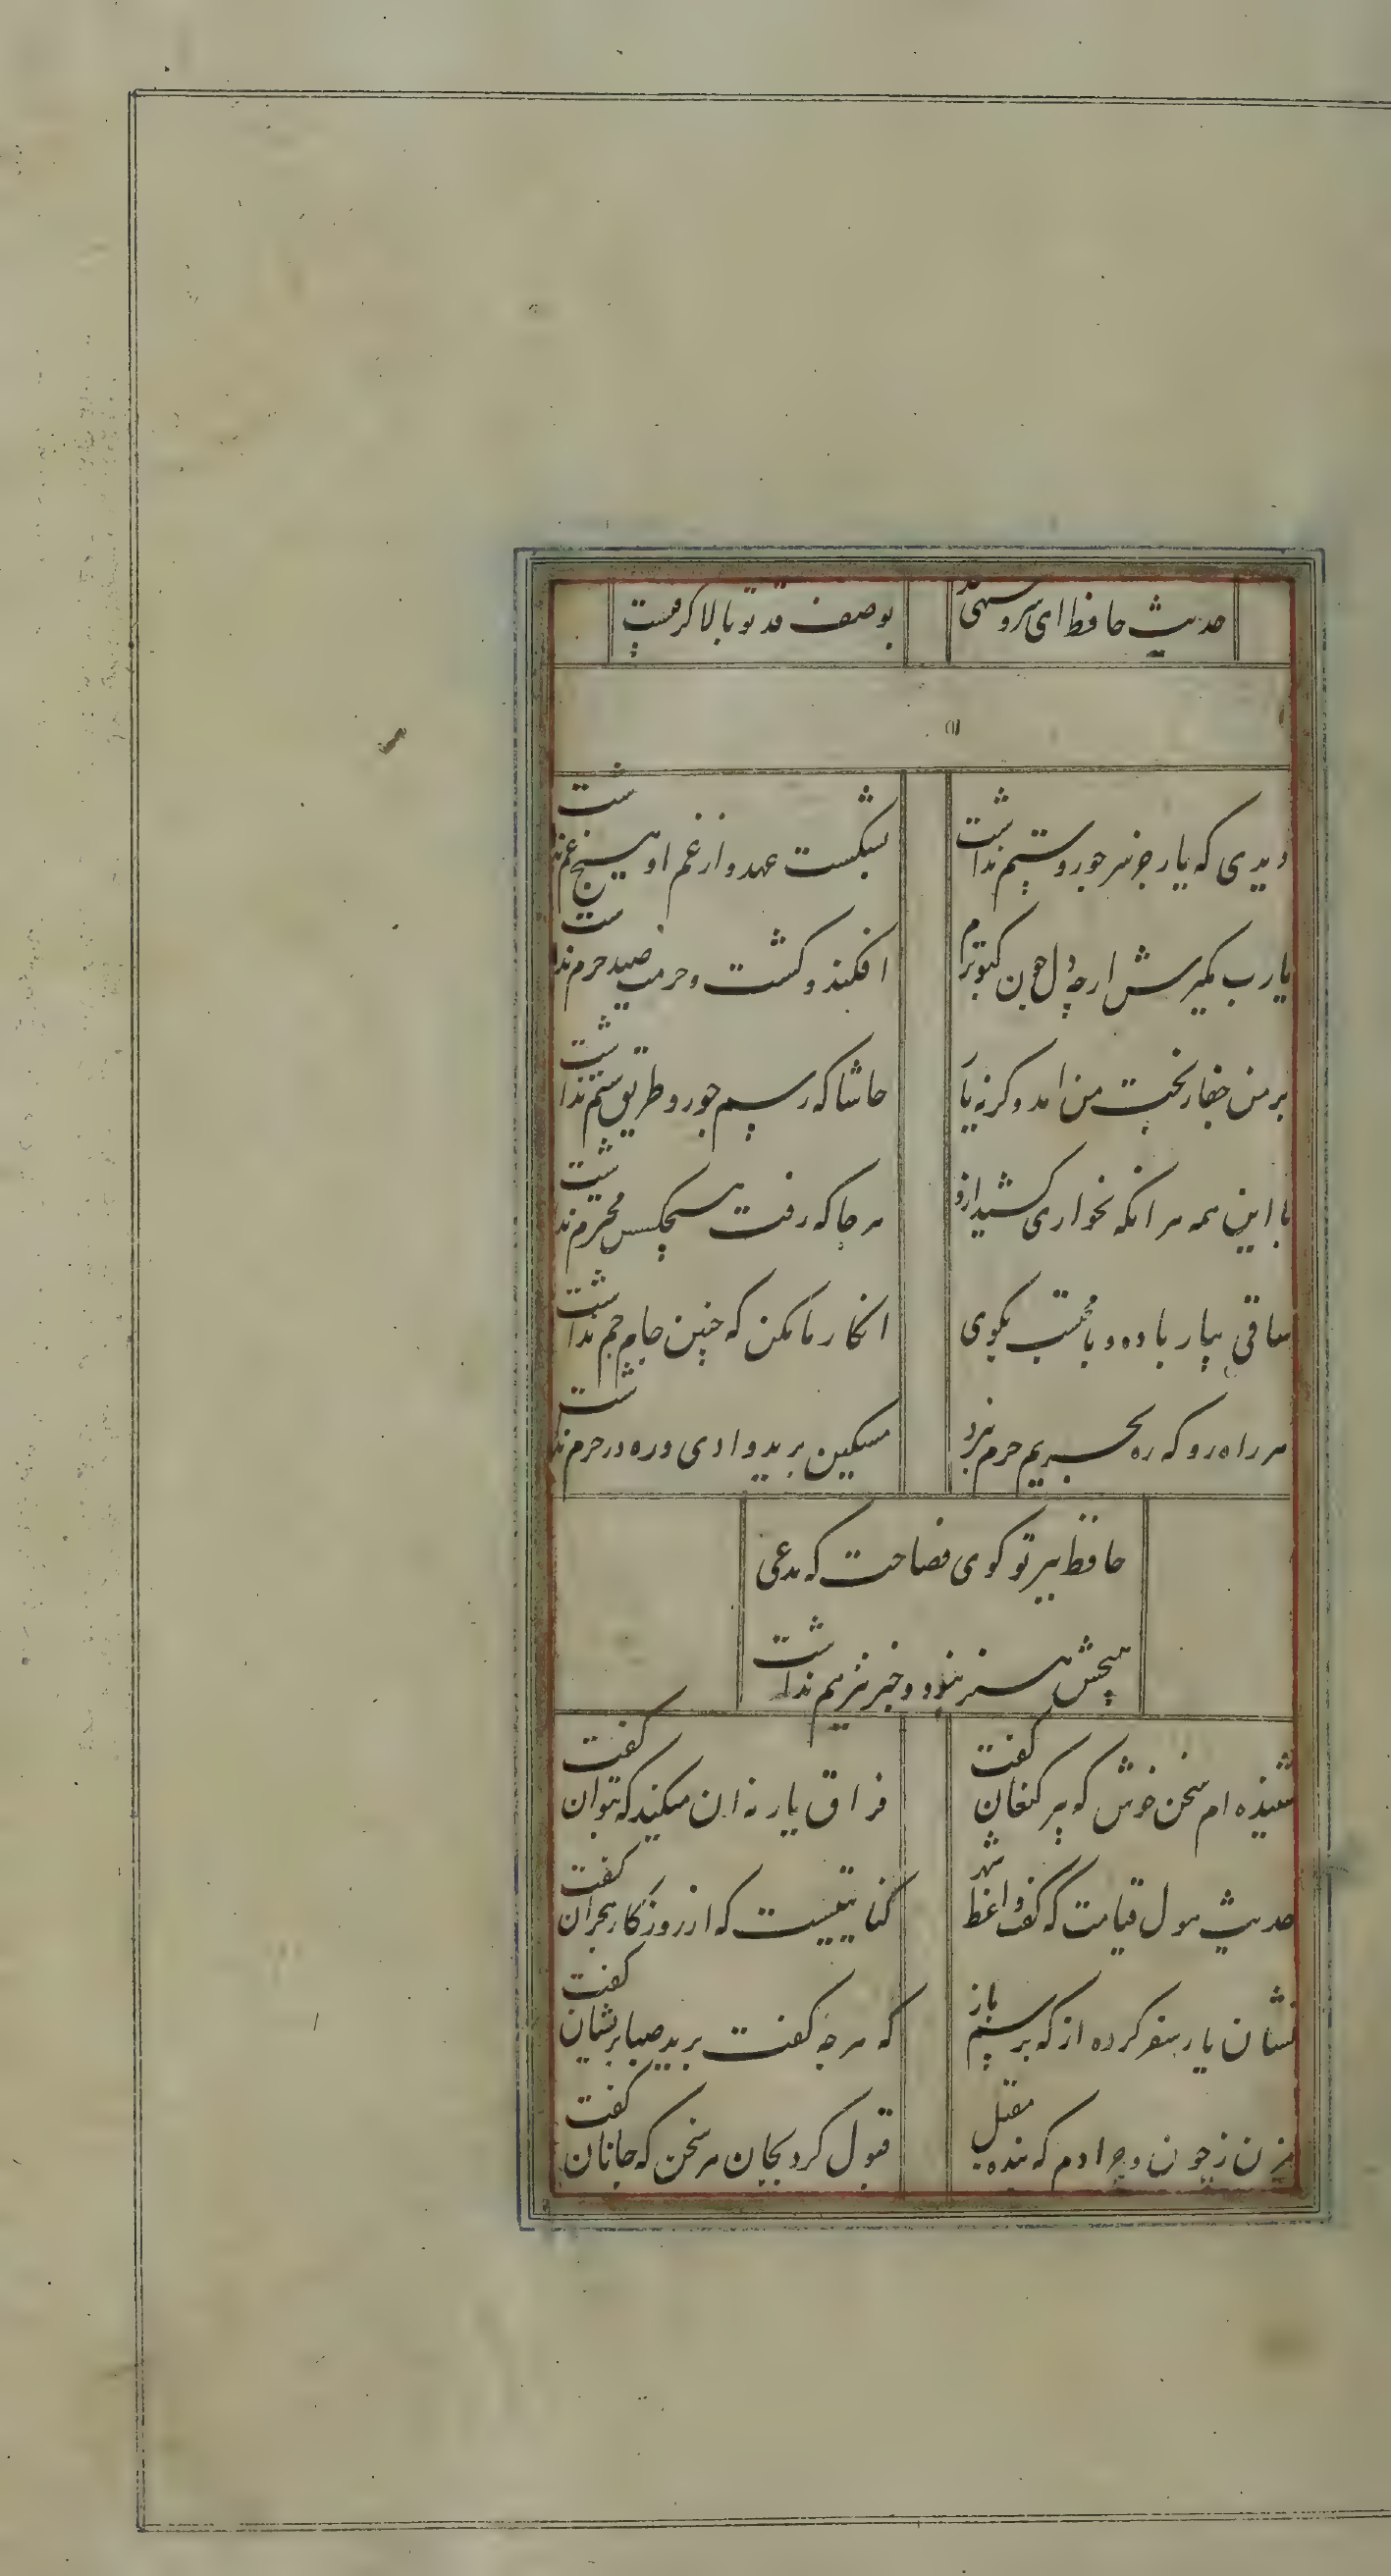 حدیث حافظ ای سرو سهی قد
بوصف قد تو بالا گرفتست
دیدی که یار جز سر جور و ستم نداشت
بشکست عهد و از غم او هیچ غم نداشت
یارب مگیرش ارچه دل چون کبوترم
افکند و کشت و حرمت صید حرم نداشت
بر من جفا ز بخت من امد وگرنه یار
حاشا که رسم جور و طریق ستم نداشت
با این همه هر انکه نخواری کشید ازو
هر جا که رفت هیچکس محترم نداشت
ساقی بیار باده و با محتسب بگوی
انکار ما مکن که چنین جام جم نداشت
هر راه رو که ره بحریم حرم نبرد
مسکین برید وادی و ره در حرم نداشت
حافظ ببر تو گوی فصاحت که مدعی
هیچش هنر نبود و خبر نیز هم نداشت
شنیده ام سخن خوش که پیر کنعان گفت
فراق یار نه ان میکند که بتوان گفت
حدیث هول قیامت که گفت واعظ شهر
کنایتیست که از روزگار هجران گفت
نشان یار سفر کرده از که پرسم باز
که هر چه گفت برید صبا پریشان گفت
مزن ز چون و چرا دم که بنده مقبل
قبول کرد بجان هر سخن که جانان گفت